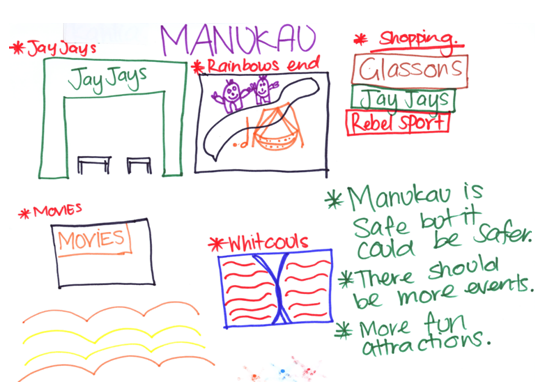 MANUKAU
* JayJays
JayJays
* Rainbows end
* Shopping.
Glassons
JayJays
Rebel Sport
* MOVIES
MOVIES
* Whitcouls
* Manukau is
safe but it
could be safer.
* There should
be more events.
* More fun
attractions.